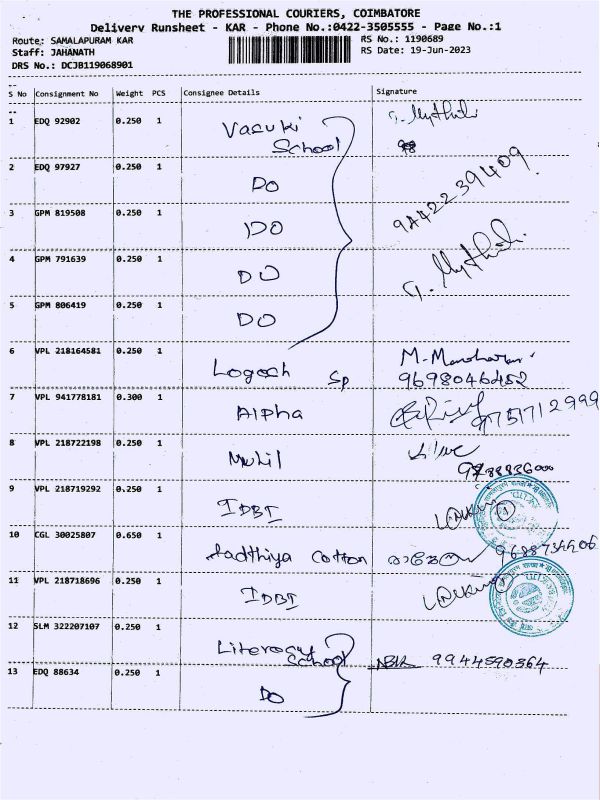 THE PROFESSIONAL COURIERS, COIMBATORE
Delivery Runsheet - KAR - Phone No.:0422-3505555 - Page No.:1
Route: SAMALAPURAM KAR RS No.: 1190689
Staff: JAHANATH RS Date: 19-Jun-2023
DRS No.: DCJB119068901
S No Consignment No Weight PCS Consignee Details Signature
1 EDQ 92902 0.250 1 Vasuki School
2 EDQ 97927 0.250 1 DO
9442239409
3 GPM 819508 0.250 1 DO
4 GPM 791639 0.250 1 DO
5 GPM 806419 0.250 1 DO
6 VPL 218164581 0.250 1 Logesh Sp M. Manoharan
9698046452
7 VPL 941778181 0.300 1 Alpha 9751712999
8 VPL 218722198 0.250 1 Mukil
9788836000
9 VPL 218719292 0.250 1 IDBI
10 CGL 30025807 0.650 1 Aadthiya Cotton
11 VPL 218718696 0.250 1 IDBI
12 SLM 322207107 0.250 1 Literacy School 9944590364
13 EDQ 88634 0.250 1 DO